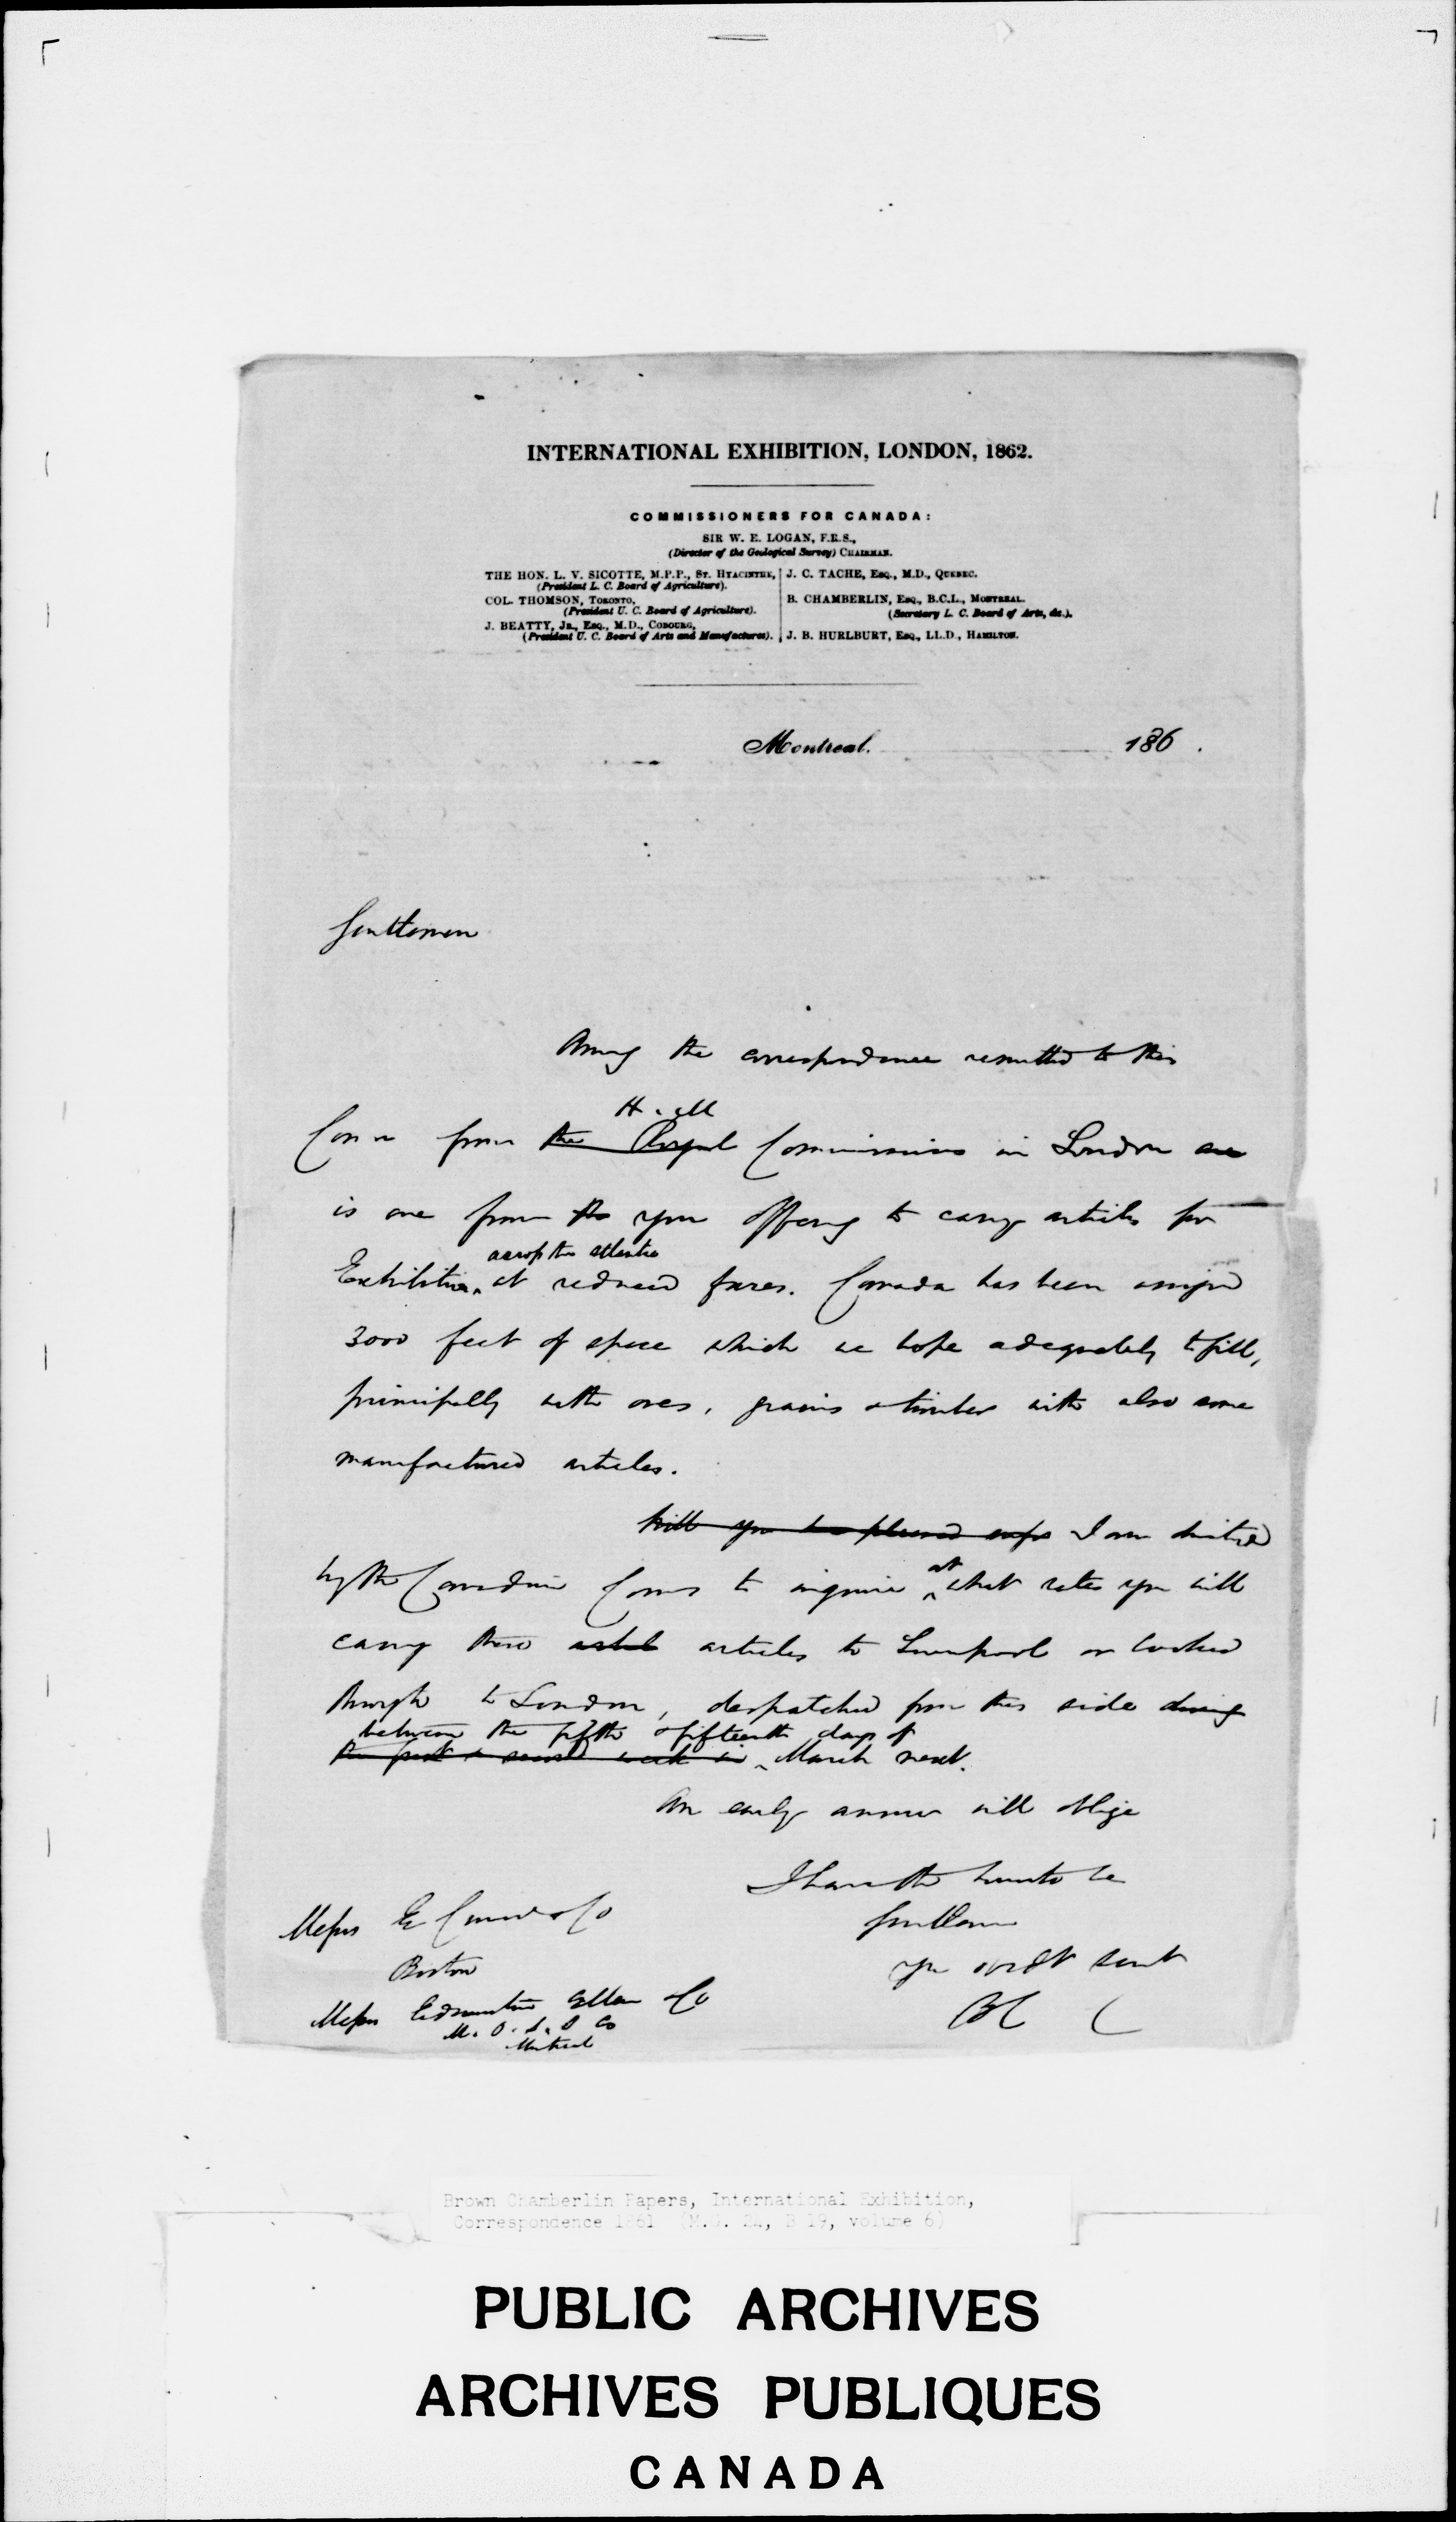 INTERNATIONAL EXHIBITION, LONDON, 1862.
COMMISSIONERS FOR CANADA:
SIR W. E. LOGAN, F.R.S.,
(Director of the Geological Survey) CHAIRMAN.
THE HON. L. V. SICOTTE, M.P.P., ST. HYACINTHE,
(President L. C. Board of Agriculture).
COL. THOMSON, TORONTO,
(President U. C. Board of Agriculture).
J. BEATTY, JR., ESQ., M.D., COBOURG,
(President U. C. Board of Arts and Manufactures).
J. C. TACHE, ESQ., M.D., QUEBEC.
B. CHAMBERLIN, ESQ., B.C.L., MONTREAL.
(Secretary L. C. Board of Arts, &c.).
J. B. HURLBURT, ESQ., LL.D., HAMILTON.
Montreal. 186 .
Gentlemen
Among the correspondence remitted to this
H. M
Comn from the Royal Commissioners in London are
is one from the you offering to carry articles for
across the atlantic
Exhibition at reduced fares. Canada has been assigned
3000 feet of space which we hope adequately to fill,
principally with ores, grains & timber with also some
manufactured articles.
Will you be pleased I am directed
at
by the Canadian Comrs to inquire what rates you will
carry these articles to Liverpool or booked
through to London, despatched from this side during
between the fifth & fifteenth days of
the first & second week in March next.
An early answer will oblige
I have the honor to be
Gentlemen
yr obdt servt
BC
Messrs E Cunard & Co
Boston
Messrs Edmonstone Allan & Co
M. O. S. S Co
Montreal
Brown Chamberlin Papers, International Exhibition,
Correspondence 1861 (M.G. 24, B 19, volume 6)
PUBLIC ARCHIVES
ARCHIVES PUBLIQUES
CANADA